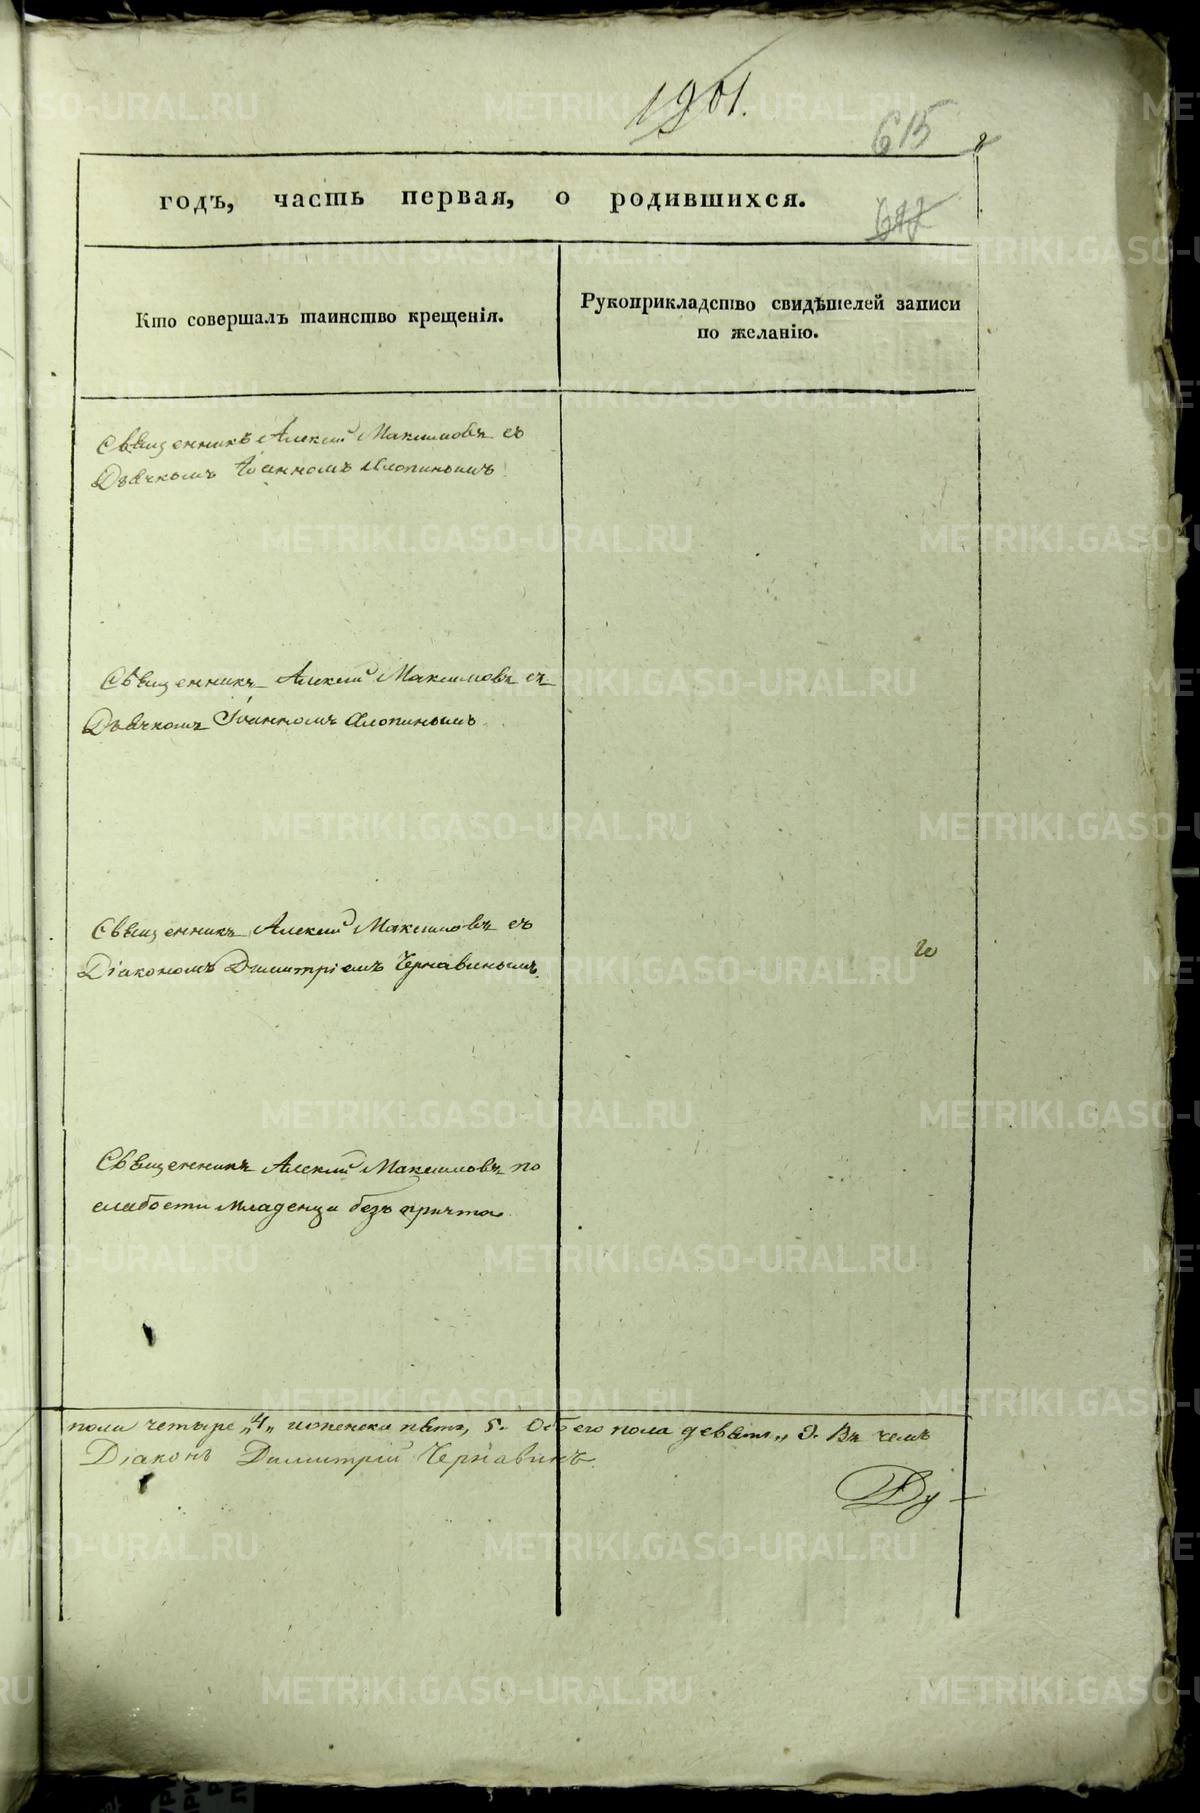 1901.
615
годъ, часть первая, о родившихся.
Кто совершалъ таинство крещенія.
Рукоприкладство свидѣтелей записи
по желанію.
Священникъ Алексій Максимовъ съ
Дьячкомъ Іоанномъ Хлопинымъ
Священникъ Алексій Максимовъ съ
Дьячкомъ Іоанномъ Хлопинымъ
Священникъ Алексій Максимовъ съ
Діакономъ Димитріемъ Чернавинымъ
Священникъ Алексій Максимовъ по
слабости младенца безъ причта
пола четыре „4„ и женска пять, 5. Обоего пола девять„ 9. Въ чемъ
Діаконъ Димитрій Чернавинъ.
Ду-
METRIKI.GASO-URAL.RU